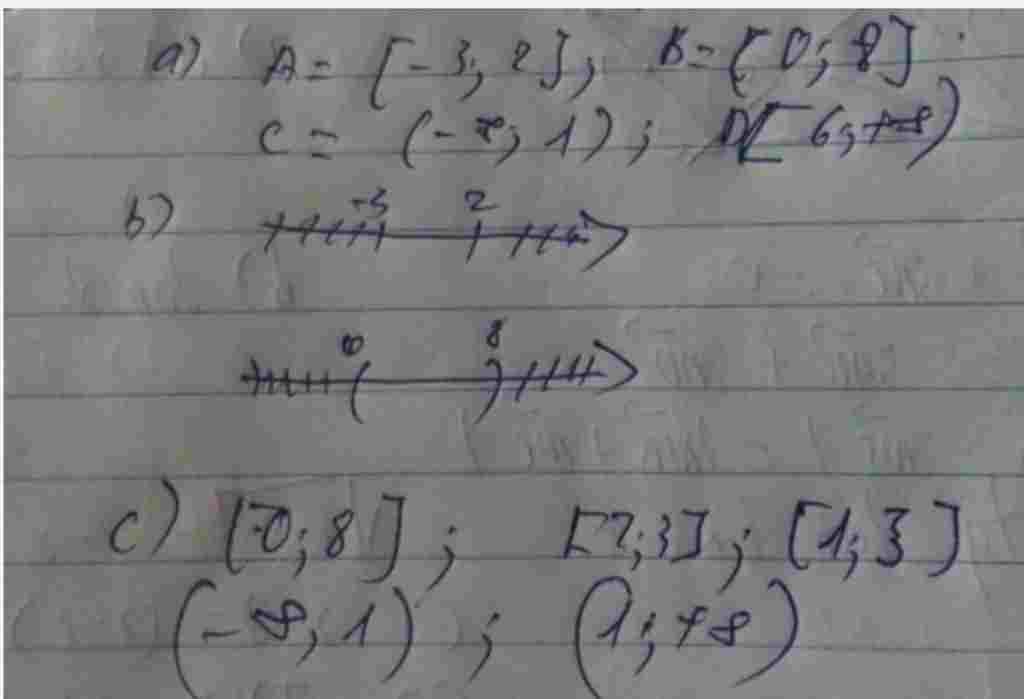 a) A = [-3; 2]; B = (0; 8]
C = (-∞; 1); D[6; +∞)
b) -3 2
0 8
c) [-0; 8]; [2; 3]; [1; 3]
(-∞; 1); (1; +∞)